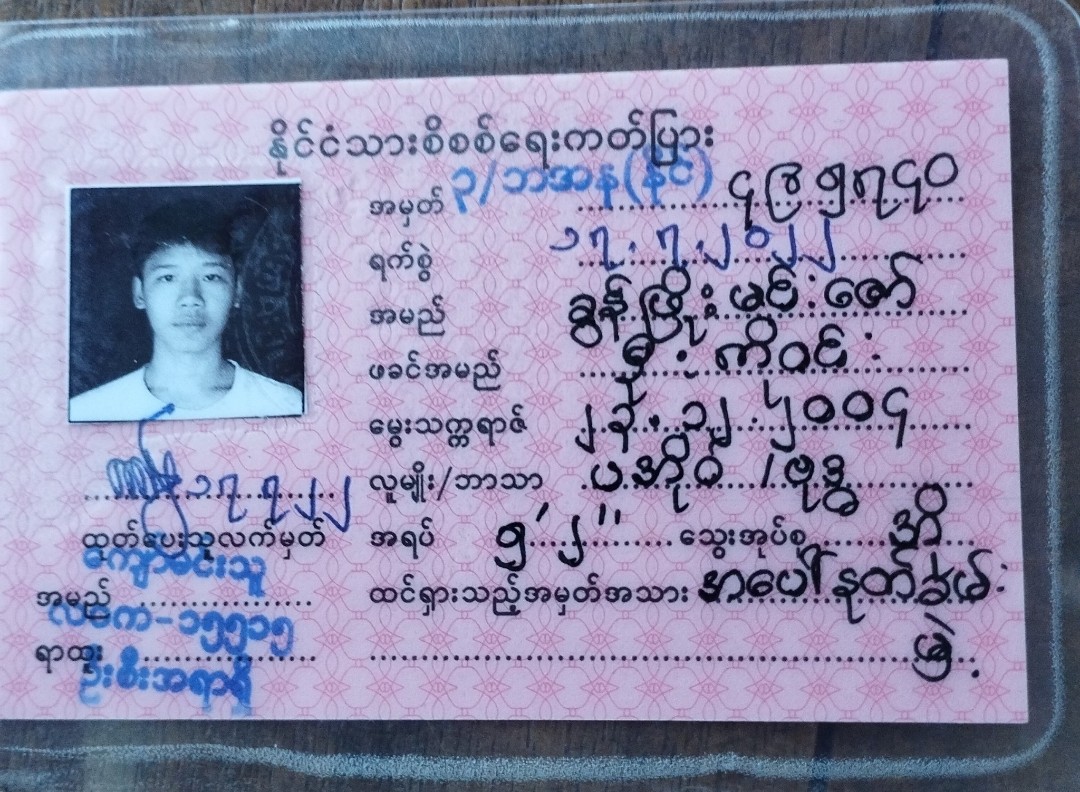 နိုင်ငံသားစိစစ်ရေးကတ်ပြား
အမှတ် ၃/ဘအန(နိုင်) ၄၉၅၈၄၀
ရက်စွဲ ၁၇.၇.၂၀၂၂
အမည် ခွန်ဖြိုးမင်းဇော်
ဖခင်အမည် ဦးကိုဝင်း
မွေးသက္ကရာဇ် ၂၃.၁၂.၂၀၀၄
လူမျိုး/ဘာသာ ပအိုဝ်း/ဗုဒ္ဓ
အရပ် ၅' ၂'' သွေးအုပ်စု အို
ထင်ရှားသည့်အမှတ်အသား အပေါ်နှုတ်ခမ်း
မှဲ့.
၁၇.၇.၂၂
ထုတ်ပေးသူလက်မှတ်
အမည် ကျော်မင်းသူ
လဝက-၁၅၅၁၅
ရာထူး ဦးစီးအရာရှိ